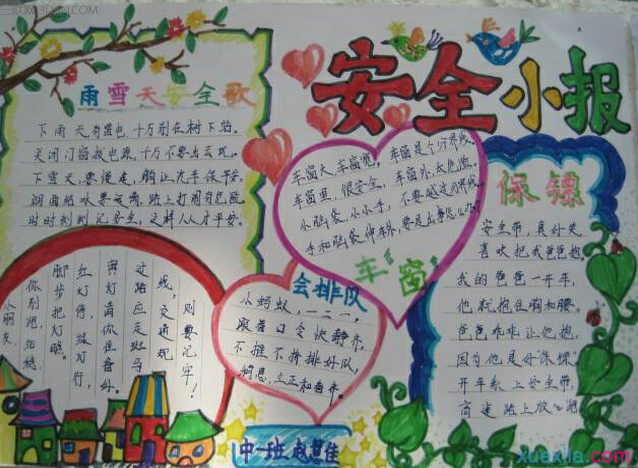 安全小报
雨雪天安全歌
下雨天有雷电,千万别在树下站。
关闭门窗拔电源,千万不要出去玩。
下雪天,要慢走,
时时刻刻记安全,这样人人才平安。
车窗大,车窗宽,车窗是个分界线。
车窗里,很安全,车窗外,太危险。
小脑袋,小小手,不要越过分界线。
手和脑袋伸车外,要是出事怎么办?
车窗
保镖
安全带,真好笑
喜欢把我爸爸抱。
我的爸爸一开车,
他就抱住胸和腰。
爸爸乖乖让他抱,
因为他是好保镖。
开车系上安全带,
高速路上放心跑
会排队
小蚂蚁,一二一,
跟着口令快静齐,
不推不挤排好队,
稍息,立正和看齐。
小朋友,
你别跑,
脚步把灯瞧。
红灯停,绿灯行,
黄灯请你准备好。
过路应走斑马
线,交通规
则要记牢!
中一班 赵慧佳
xuexila.com